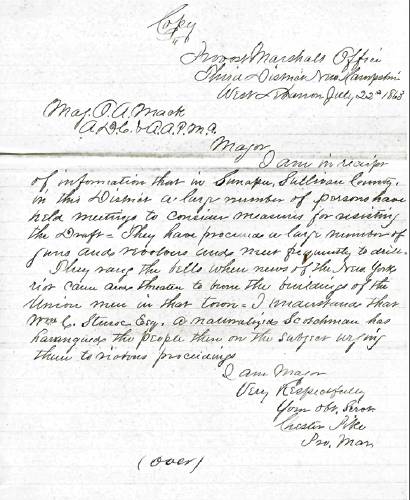 Copy
Provost Marshals Office
Third District New Hampshire
West Lebanon July, 22d 1863
Maj. O. A. Mack
A.D.C. & A.A.P.M.G.
Major
I am in receipt
of information that in Sunapee, Sullivan County,
in this District a large number of persons have
held meetings to consider measures for resisting
the Draft = They have procured a large number of
guns and revolvers and meet frequently to drill.
They rang the bells when news of the New York
riot came and threaten to burn the buildings of the
Union men in that town = I understand that
Wm C. Sturoc Esq. a naturalized Scotchman has
harangued the people then on the subject urging
them to riotous proceedings
I am Major
Very Respectfully
Your Obt. Servt
Chester Pike
Pro. Mar
(over)